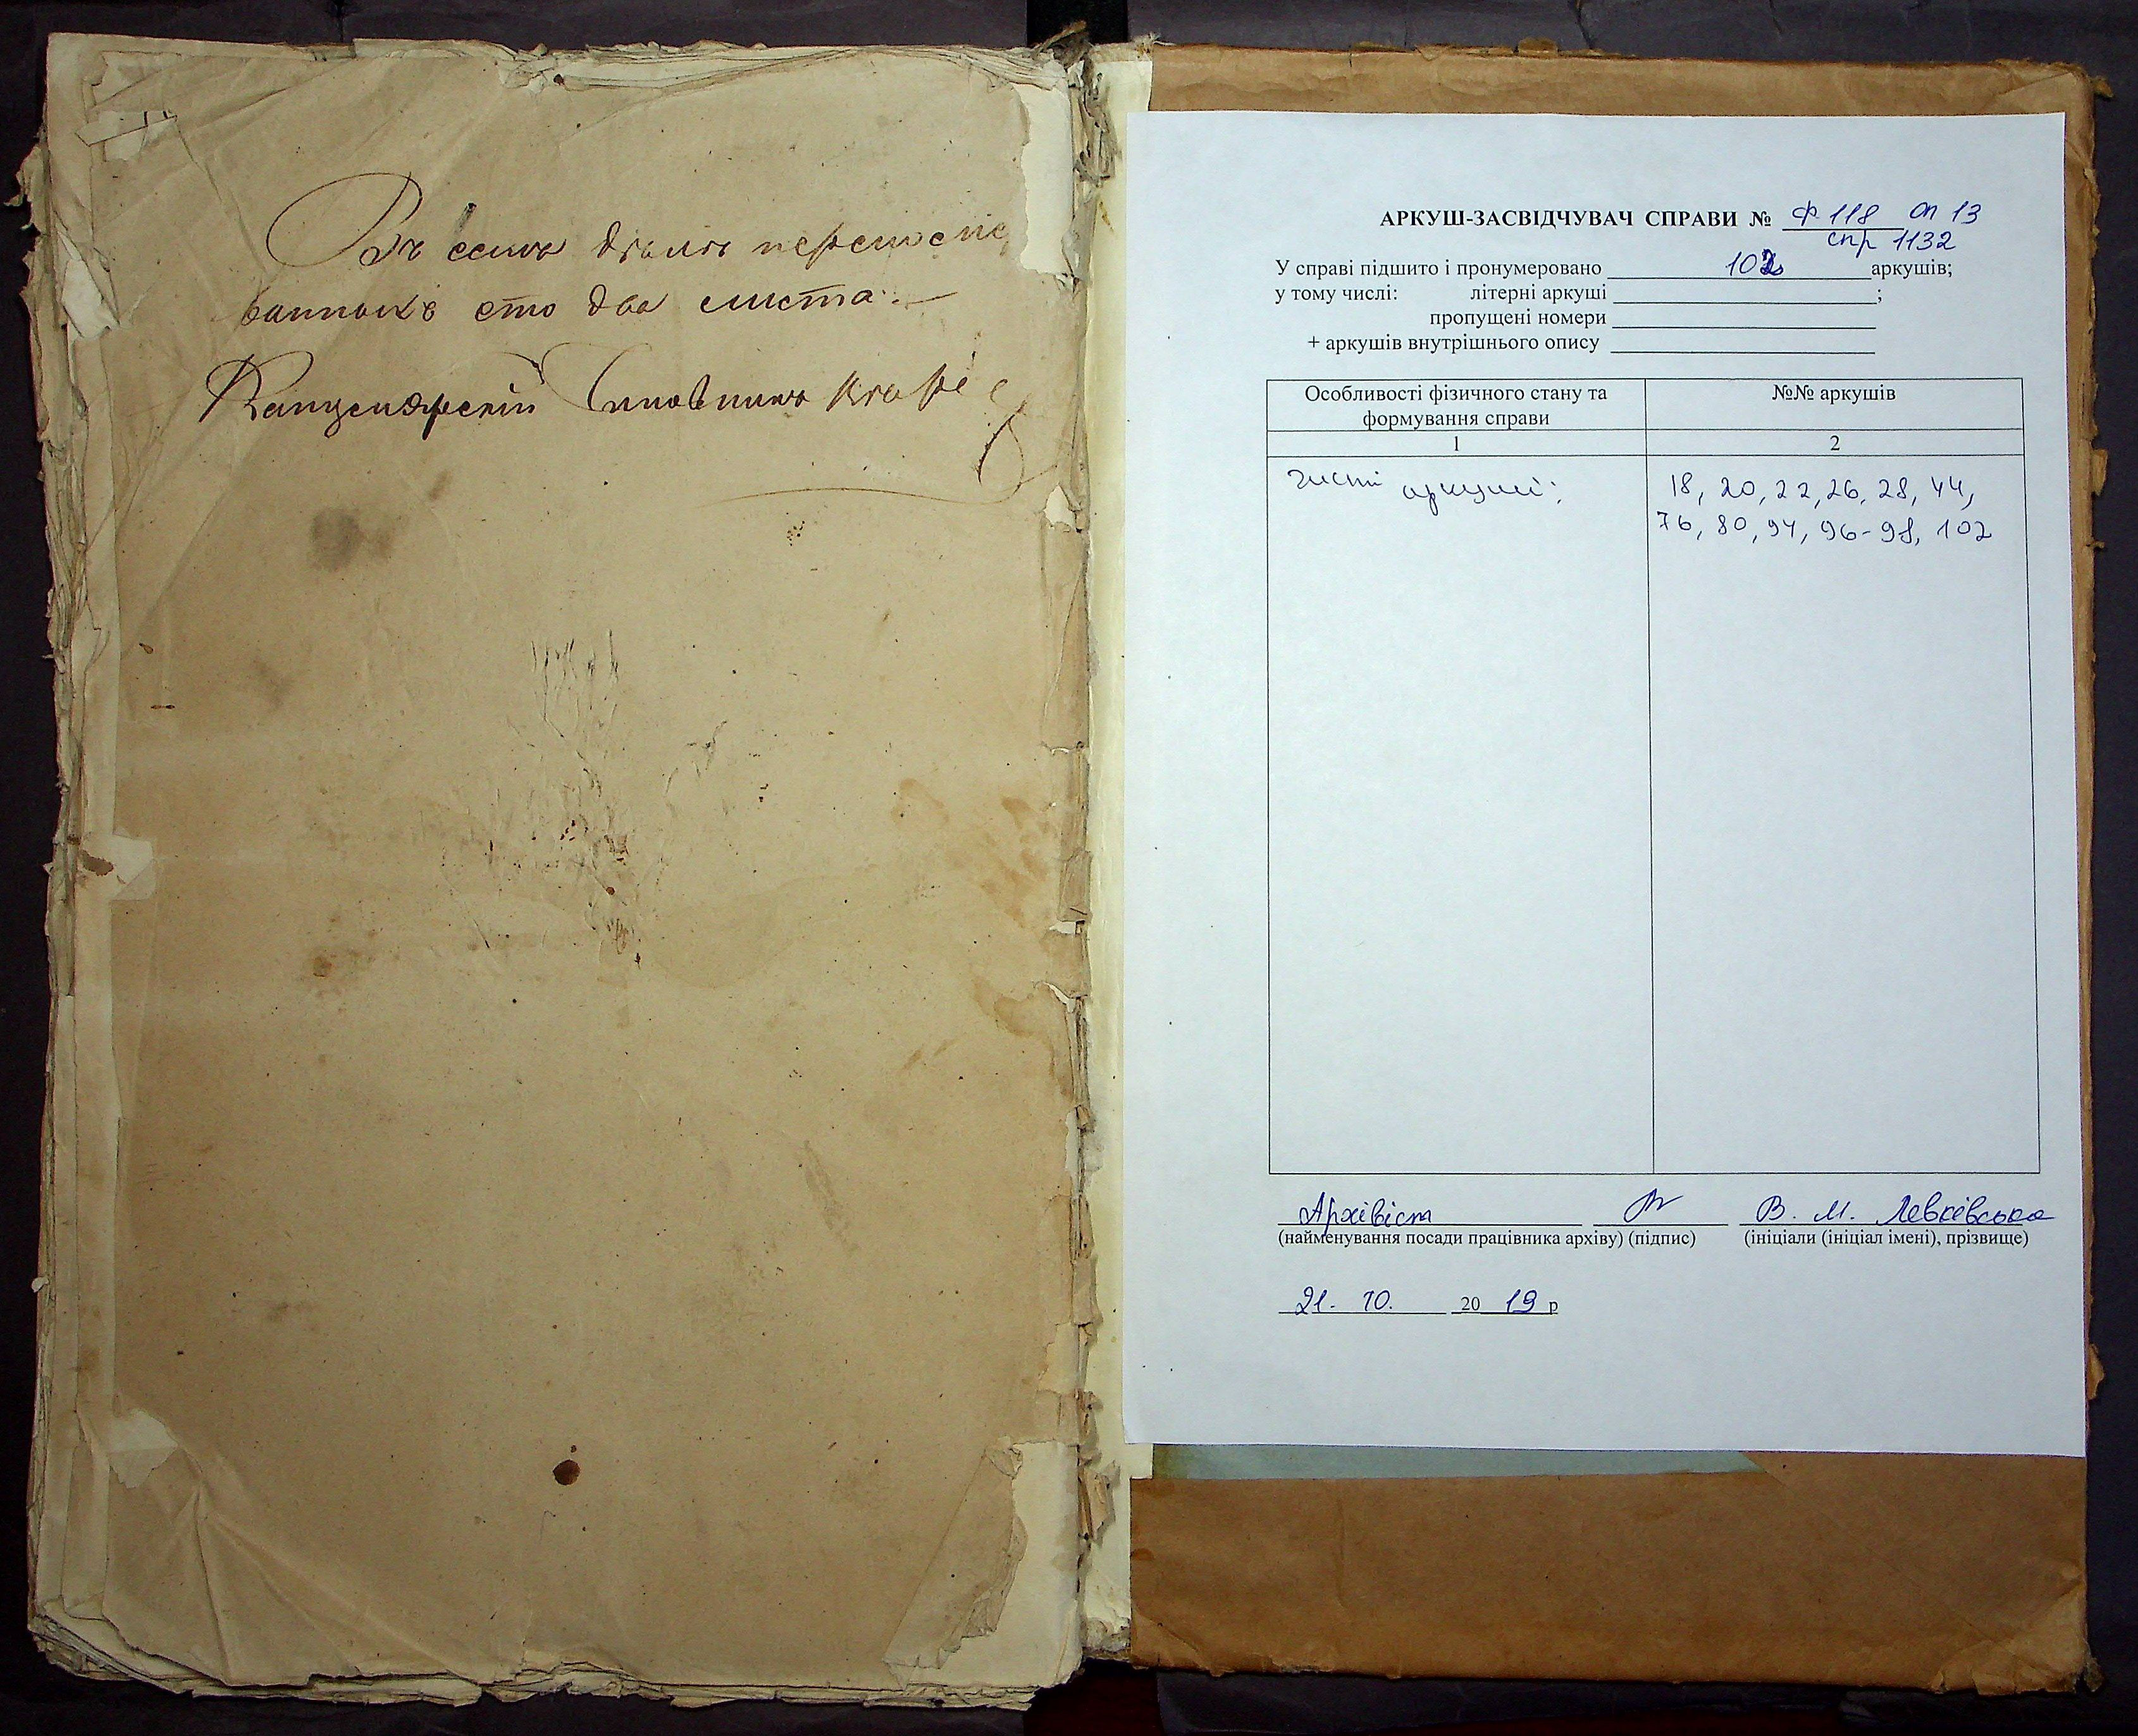 Въ семъ дѣлѣ перенуме
ванныхъ сто два листа.
Канцелярскій Чиновникъ
АРКУШ-ЗАСВІДЧУВАЧ СПРАВИ № Ф 118 оп 13
спр 1132
У справі підшито і пронумеровано 102 аркушів;
у тому числі: літерні аркуші ;
пропущені номери
+ аркушів внутрішнього опису
Особливості фізичного стану та формування справи
№№ аркушів
1
2
чисті аркуші:
18, 20, 22, 26, 28, 44,
76, 80, 94, 96-98, 102
Архівіст В. М. Левківська
(найменування посади працівника архіву) (підпис) (ініціали (ініціал імені), прізвище)
21. 10. 2019 р